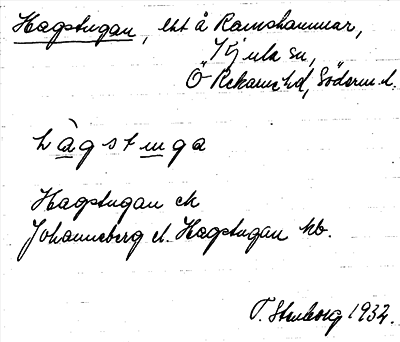 Hagstugan, lht å Ramshammar,
Kjula sn,
Ö Rekarne hd, Söderm. l.
hàgstuga
Hagstugan ek
Johannesberg el. Hagstugan kb.
T. Stenborg 1932.